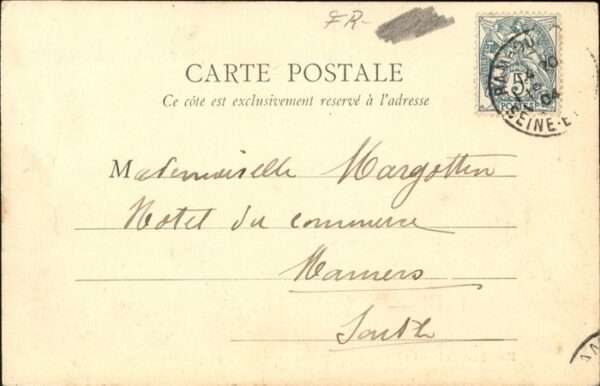 FR-
CARTE POSTALE
Ce côté est exclusivement reservé à l'adresse
5
POSTES
RAMBOU
04
SEINE-E
Mademoiselle Margottin
Hotel du commerce
Mamers
Sarthe